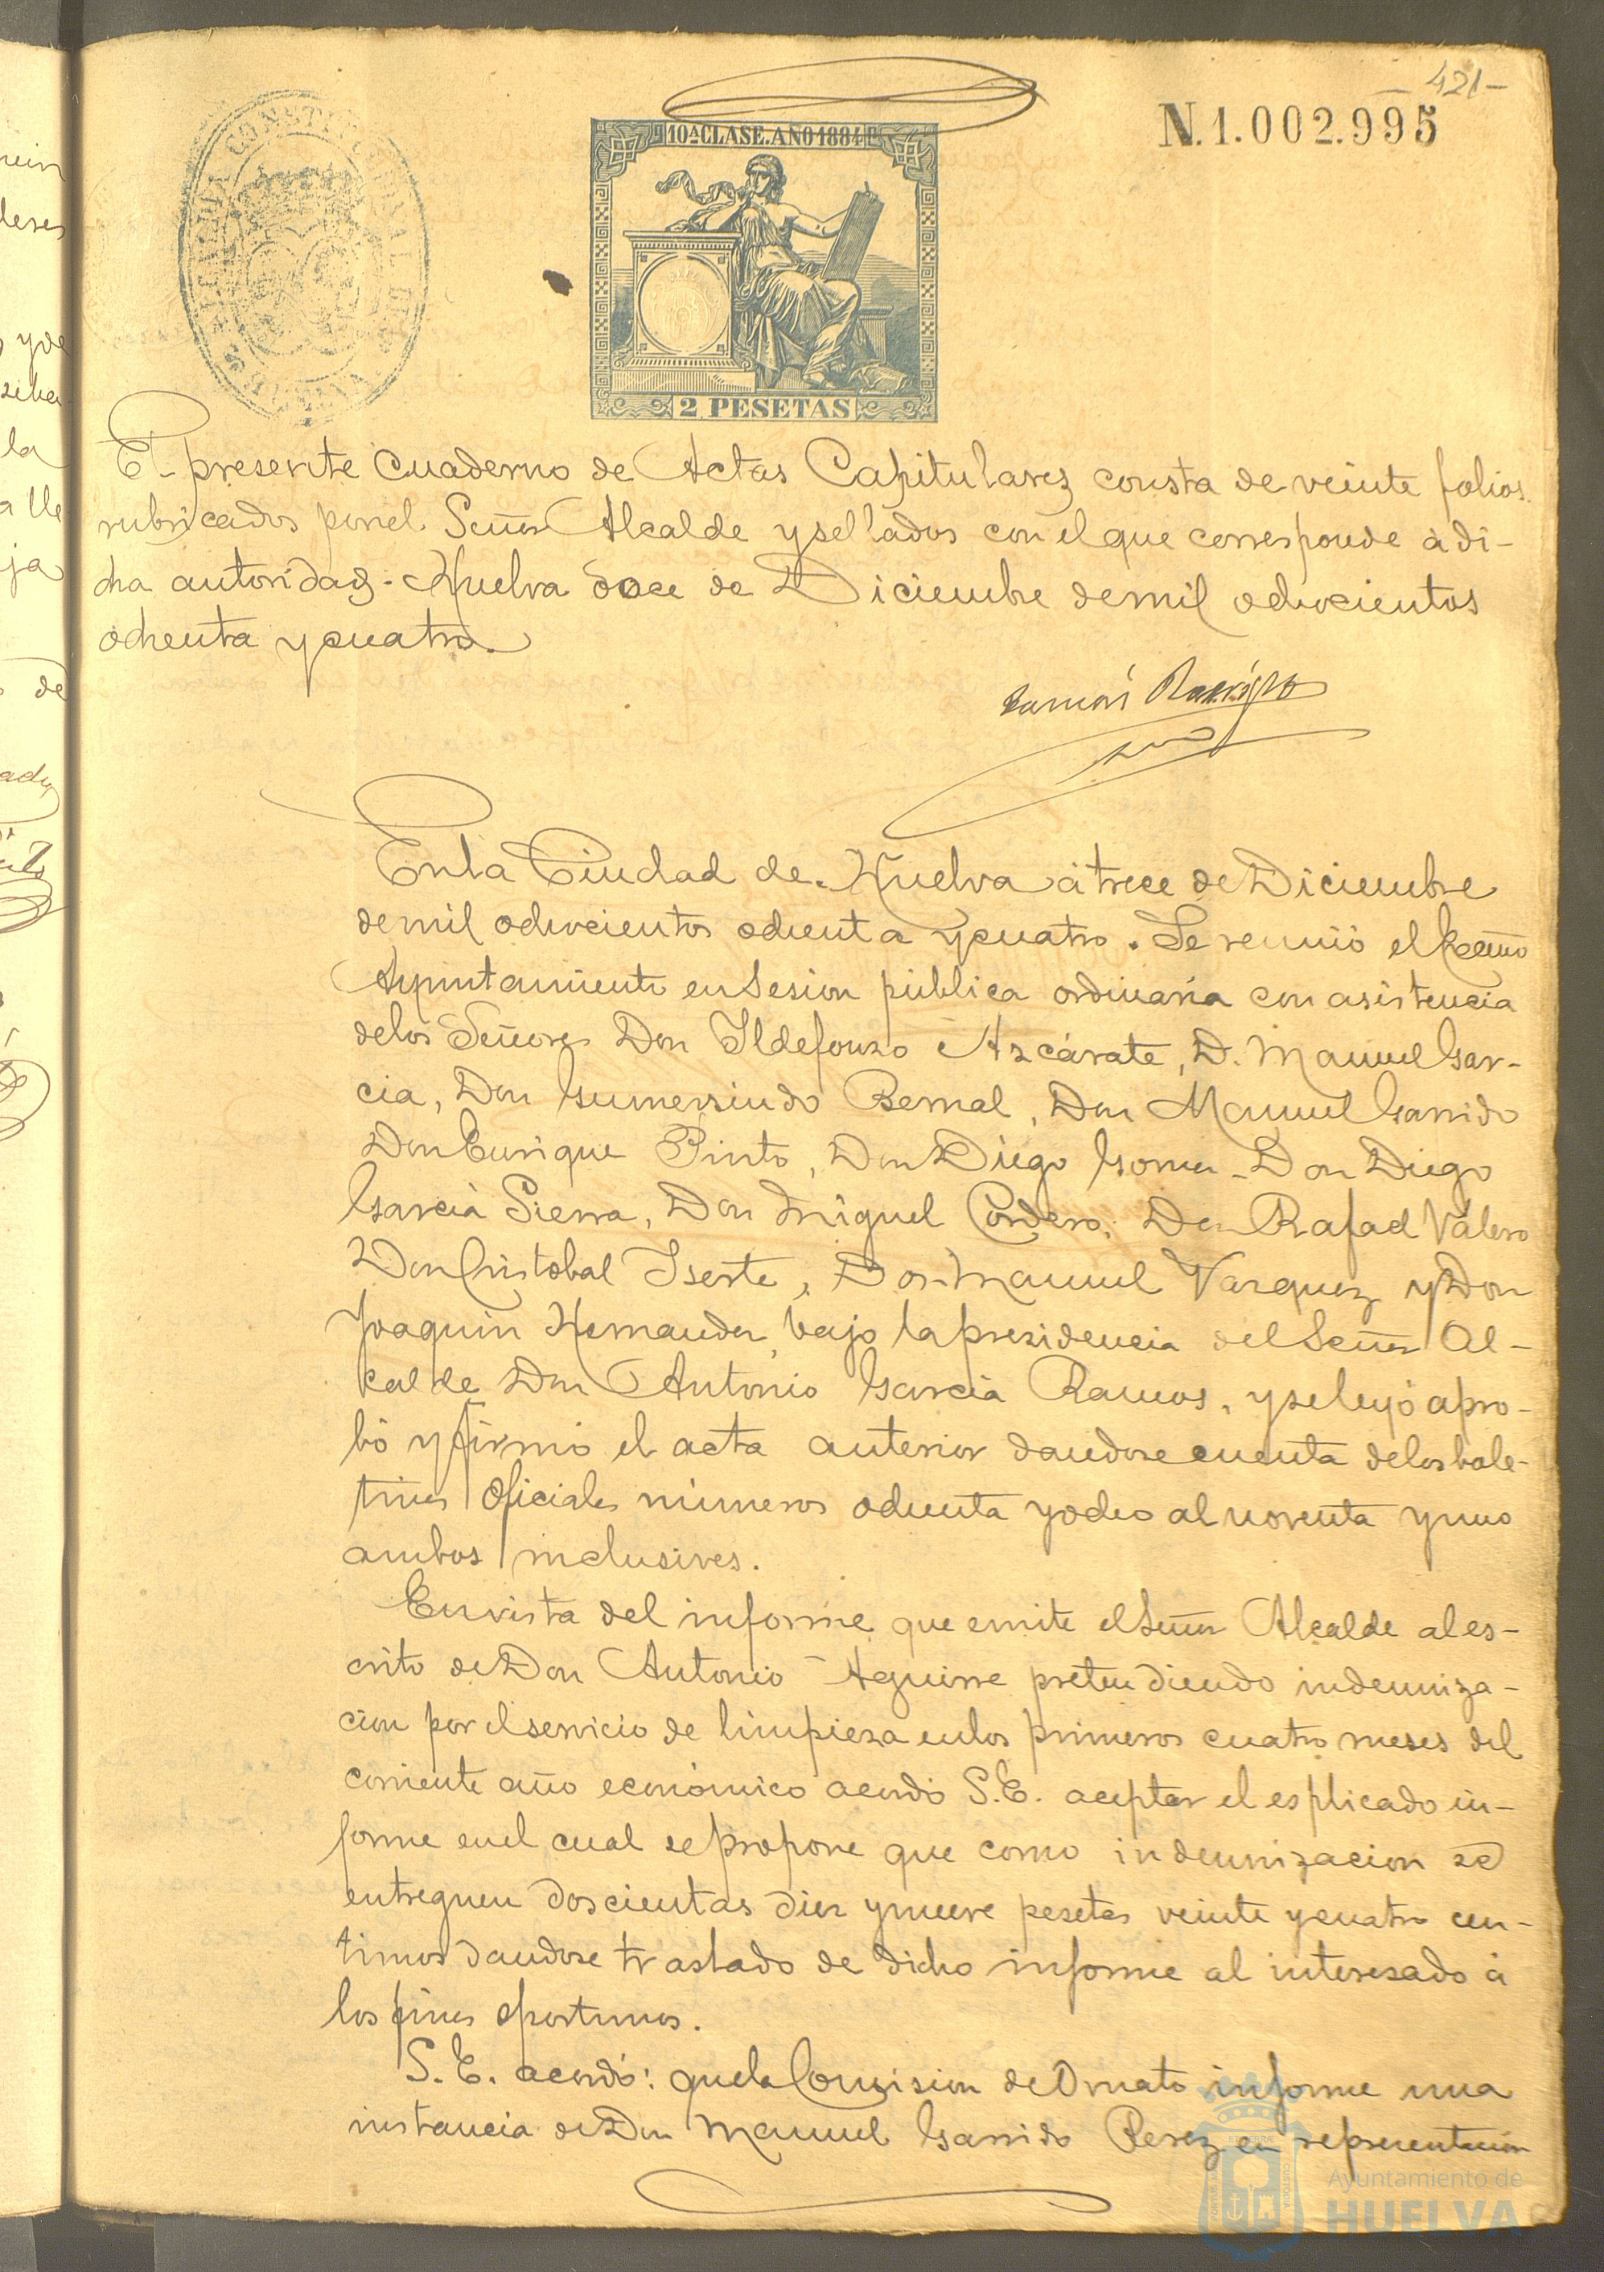 421-
N.1.002.995
10ª CLASE. AÑO 1884
2 PESETAS
El presente Cuaderno de Actas Capitulares consta de veinte folios
rubricados por el Señor Alcalde y sellados con el que corresponde á di-
cha autoridad. Huelva doce de Diciembre de mil ochocientos
ochenta y cuatro.
En la Ciudad de Huelva á trece de Diciembre
de mil ochocientos ochenta y cuatro. Se reunió el
Ayuntamiento en Sesion pública ordinaria con asistencia
de los Señores Don Ildefonso Azcárate, D. Manuel Gar-
cia, Don Gumersindo Bernal, Don Manuel Garrido
Don Enrique Pinto, Don Diego Gomez - Don Diego
García Sierra, Don Miguel Cordero, Don Rafael Valero
Don Cristobal Iserte, Don Manuel Vazquez y Don
Joaquin Hernandez, bajo la presidencia del Señor Al-
calde Don Antonio García Ramos, y se leyó apro-
bó y firmó el acta anterior dandose cuenta de los bole-
tines oficiales números ochenta y ocho al noventa y uno
ambos inclusives.
En vista del informe que emite el Señor Alcalde al es-
crito de Don Antonio Aguirre pretendiendo indemniza-
cion por el servicio de limpieza en los primeros cuatro meses del
corriente año económico acordó S.E. aceptar el esplicado in-
forme en el cual se propone que como indemnizacion se
entreguen doscientas diez y nueve pesetas veinte y cuatro cen-
timos dandose traslado de dicho informe al interesado á
los fines oportunos.
S.E. acordó: que la Comision de Ornato informe una
instancia de Don Manuel Garrido Perez en representación
Ayuntamiento de
HUELVA